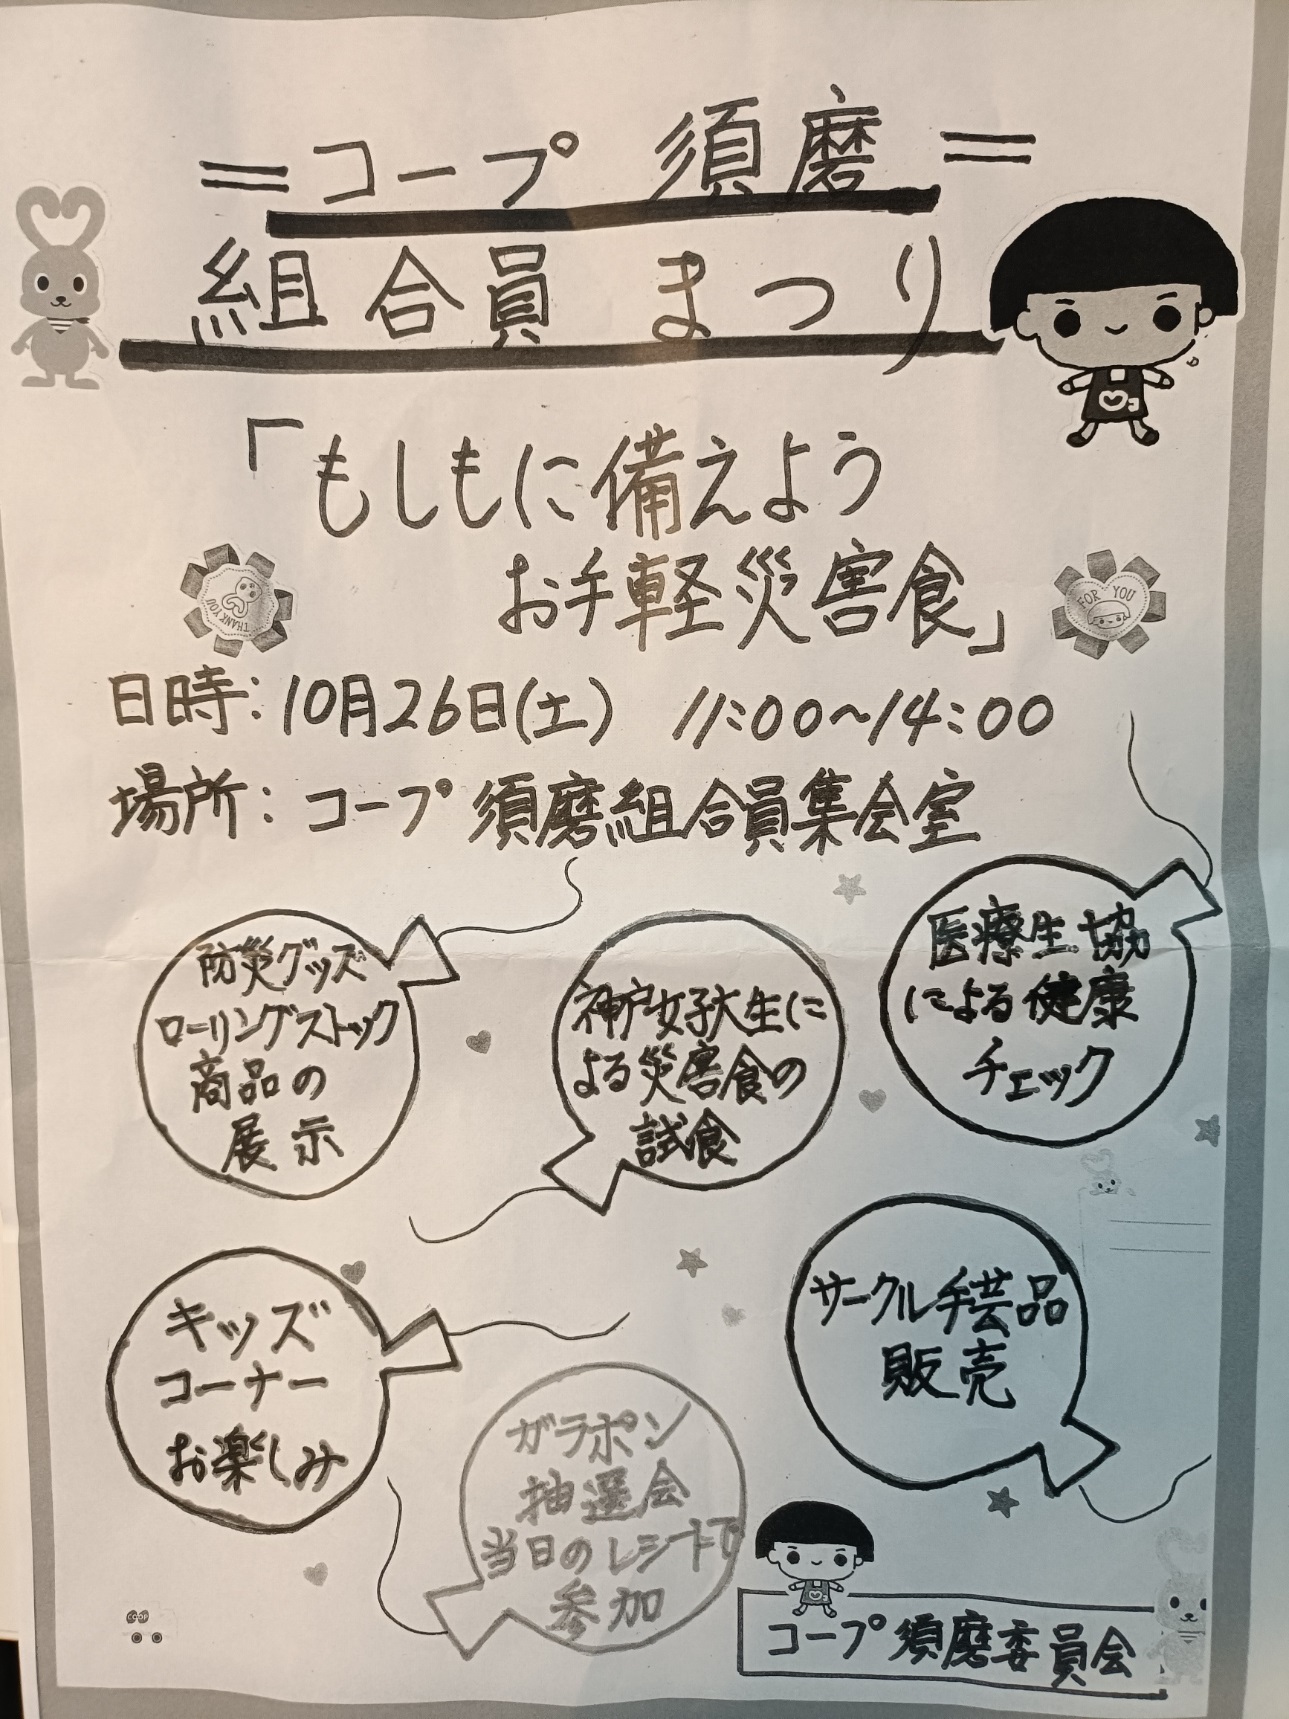 =コープ 須磨=
組合員 まつり
「もしもに備えよう
お手軽災害食」
THANK YOU
FOR YOU
日時:10月26日(土) 11:00～14:00
場所:コープ 須磨組合員集会室
防災グッズ
ローリングストック
商品の
展示
神戸女子大生に
よる災害食の
試食
医療生協
による健康
チェック
キッズ
コーナー
お楽しみ
ガラポン
抽選会
当日のレシートで
参加
サークル手芸品
販売
COOP
コープ須磨委員会